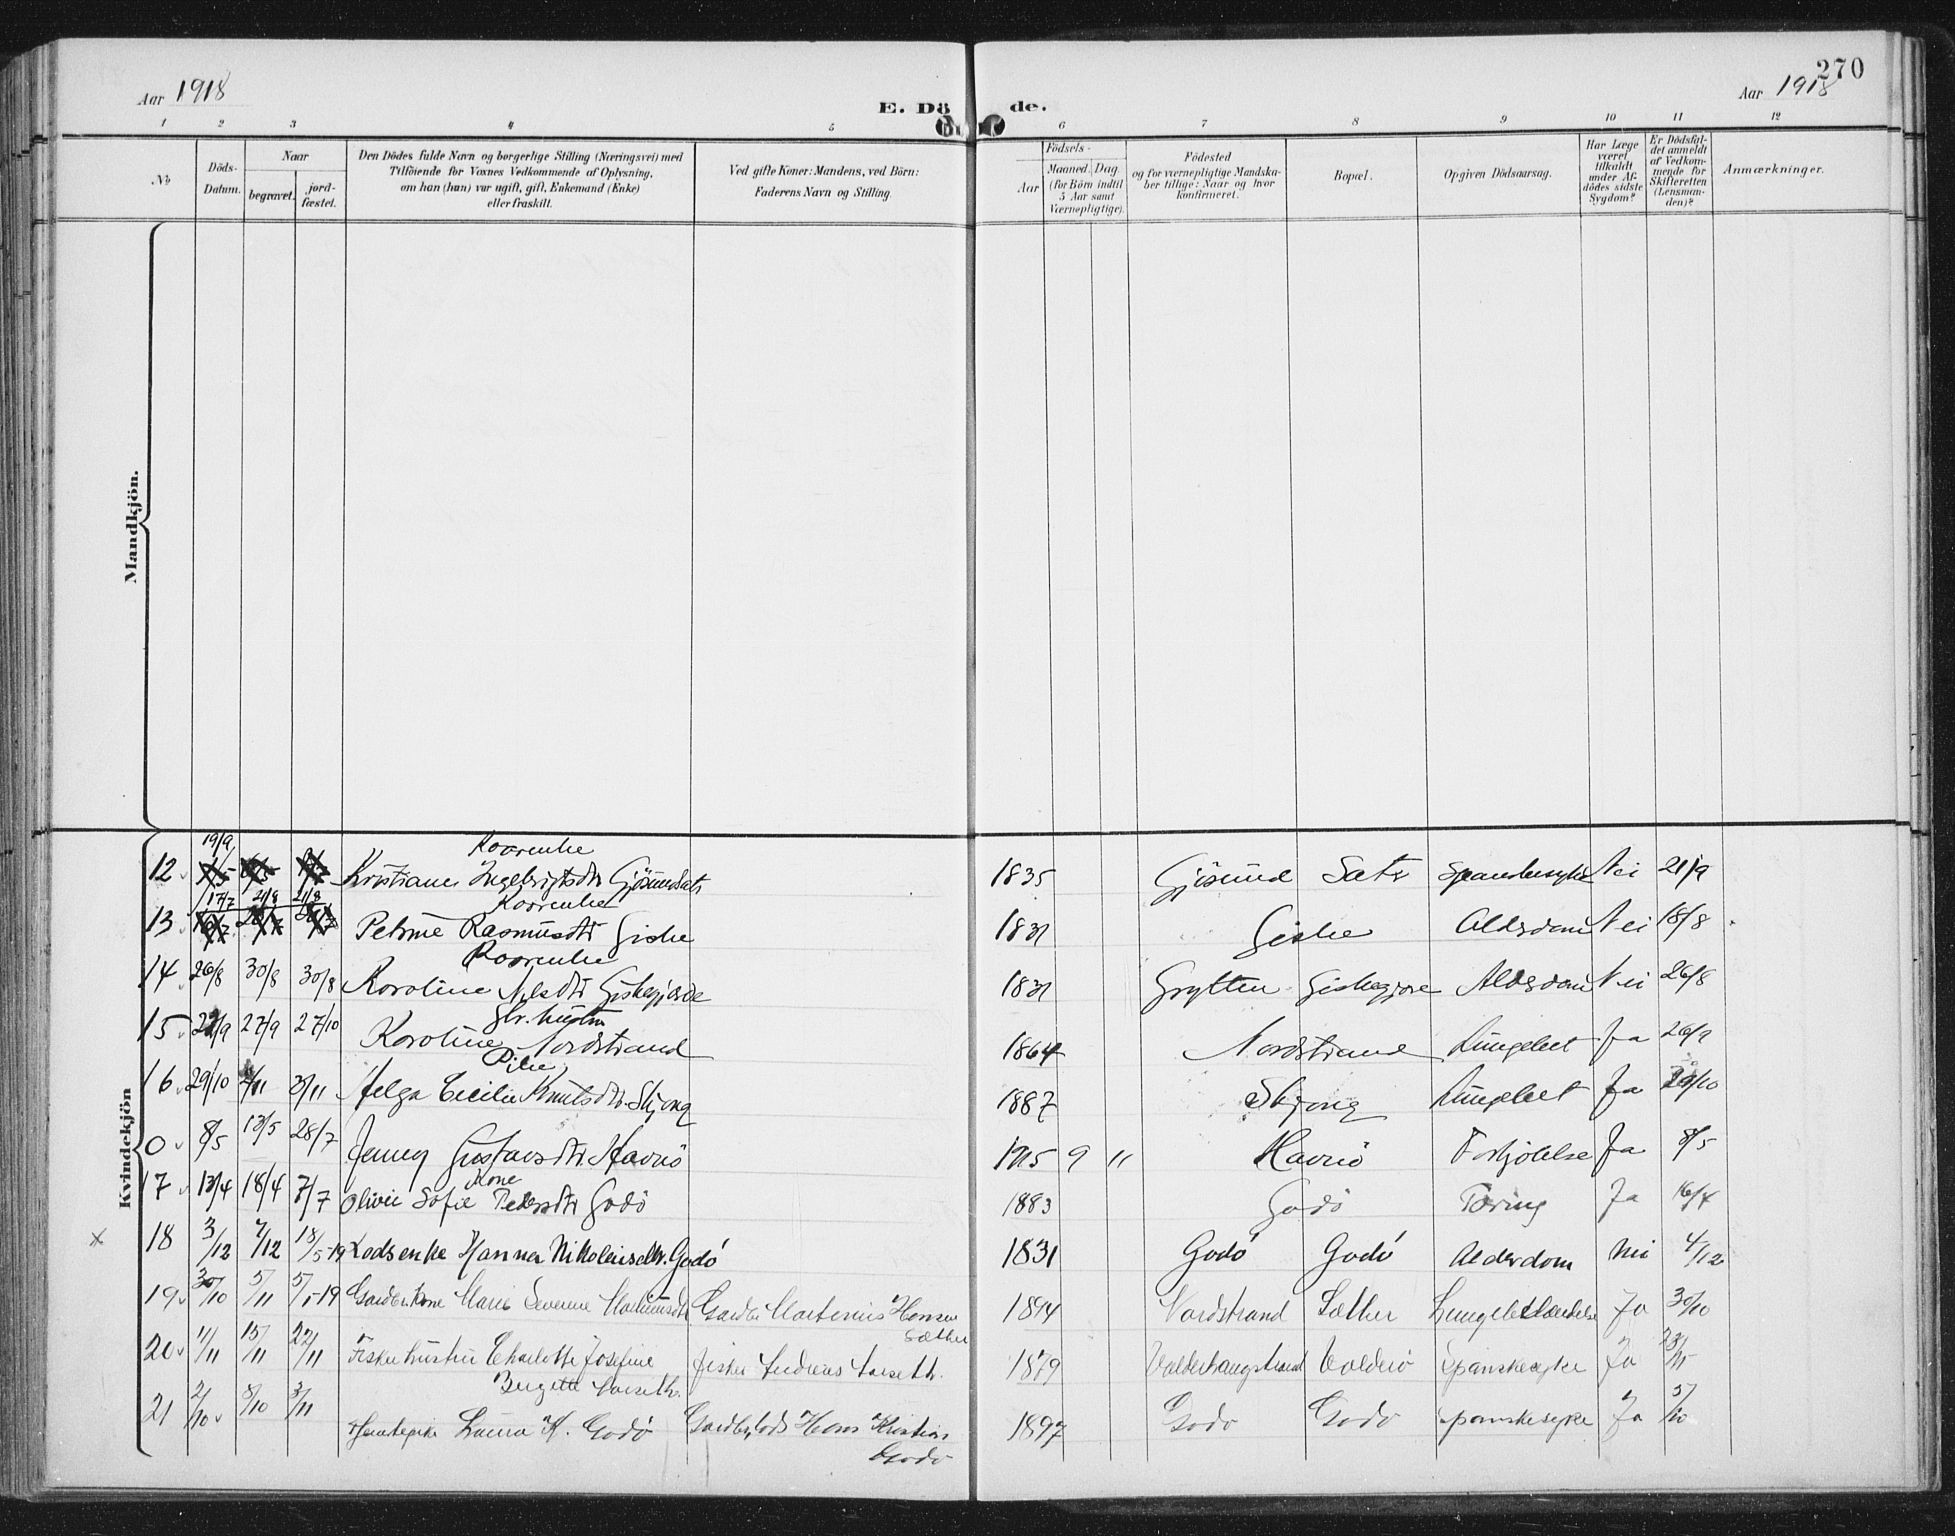 270
Aar 1918
Aar 1918
E. Dö de.
1 2 3 4 5 6 7 8 9 10 11 12
No
Döds-
Datum.
Naar
begravet.
jord-
fæstet.
Den Dödes fulde Navn og borgerlige Stilling (Næringsvei) med
Tilföiende for Voxnes Vedkommende af Oplysning,
om han (hun) var ugift, gift, Enkemand (Enke)
eller fraskilt.
Ved gifte Koner: Mandens, ved Börn:
Faderens Navn og Stilling.
Födsels-
Aar
Maaned.
Dag.
(for Börn indtil
5 Aar samt
Værnepligtige).
Födested
og for værnepligtige Mandska-
ber tillige: Naar og hvor
konfirmeret.
Bopæl.
Opgiven Dödsaarsag.
Har Læge
været
tilkaldt
under Af-
dödes sidste
Sygdom?
Er Dödsfal-
det anmeldt
af Vedkom-
mende for
Skifteretten
(Lensman-
den)?
Anmærkninger.
Mandkjön.
Kvindekjön
19/9 Kaarenke
12 Kristiane Ingebrigtsdtr Gjösund 1835 Gjösund Nei 21/9
17/7 21/8 21/8 Kaarenke
13 Petrine Rasmusdtr Giske 1831 Giske Alderdom Nei 18/8
Kaarenke
14 26/8 30/8 30/8 Karoline Nilsdtr Giskegjerde 1831 Grytten Giskegjere Alderdom Nei 26/8
Gbr. hustru
15 27/9 27/10 Karoline Nordstrand 1864 Nordstrand Lungebet Ja 26/9
Pike
16 29/10 3/11 Helga Cecilie Knutsdtr. Skjong 1887 Skjong Lungebet Ja
0 8/5 13/5 28/7 Jenny Gustavsdtr. Havnö 1915 9 " Havnö Forkjölelse Ja 8/5
Kone
17 13/4 18/4 7/7 Olivie Sofie Pedersdtr Godö 1883 Godö Tæring Ja 16/4
x 18 3/12 7/12 18/5-19 Lodsenke Hanna Nikolaisdtr. Godö 1831 Godö Godö Alderdom Nei 4/12
19 30/10 5/11 5/1-19 Gaardbr. kone Marie Severine Martinusdtr Gaardbr Martinius Hansen
Sæther 1894 Nordstrand Sæther Ja 30/10
20 11/11 15/11 22/11 Fisker hustru Charlotte Josefine
Bergitte Farseth. Fisker Andreas Farseth. 1879 Valderhaugstrand Valderö Spanskesyke Ja
21 2/10 8/10 3/11 Laura K. Godö Gaardbr, Lods Hans Kristian
Godö 1897 Godö Godö Spanskesyke Ja 5/10